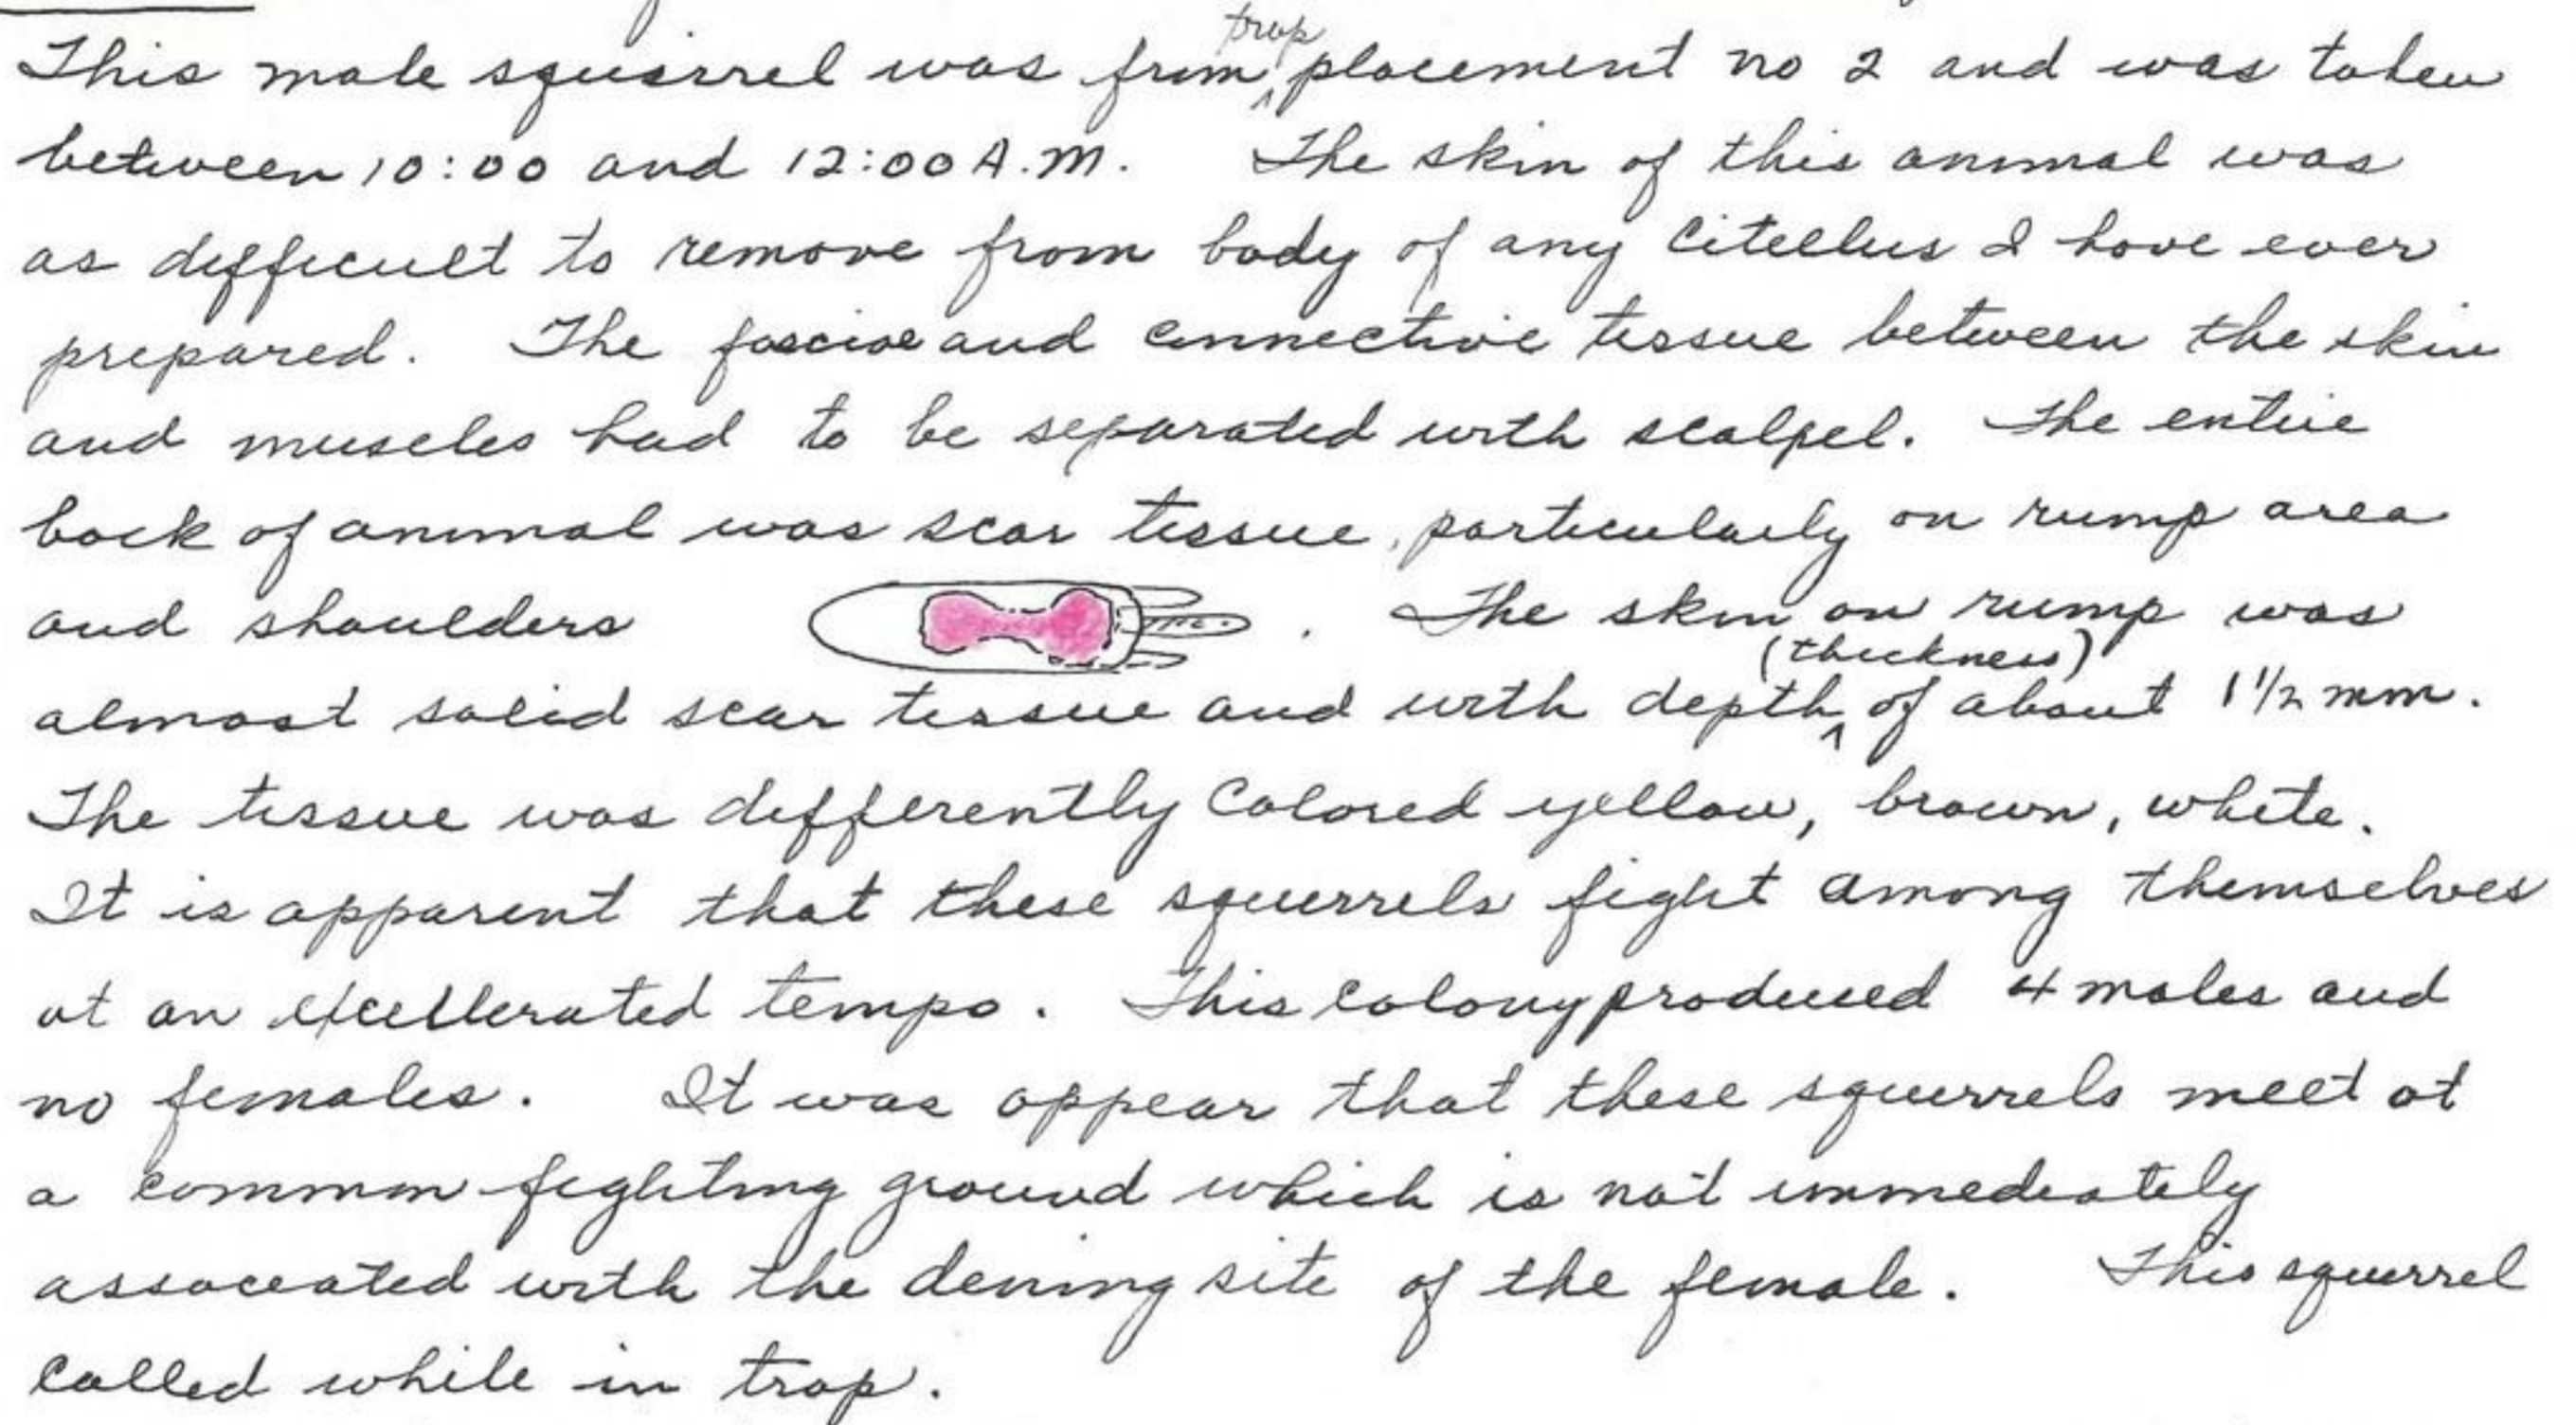 This male squirrel was from trap placement no 2 and was taken
between 10:00 and 12:00 A.M. The skin of this animal was
as difficult to remove from body of any Citellus I have ever
prepared. The fasciae and connective tissue between the skin
and muscles had to be separated with scalpel. The entire
back of animal was scar tissue, particularly on rump area
and shoulders . The skin on rump was
almost solid scar tissue and with depth (thickness) of about 1 1/2 mm.
The tissue was differently Colored yellow, brown, white.
It is apparent that these squirrels fight among themselves
at an excellerated tempo. This colony produced 4 males and
no females. It was appear that these squirrels meet at
a common fighting ground which is not immediately
associated with the dening site of the female. This squirrel
called while in trap.